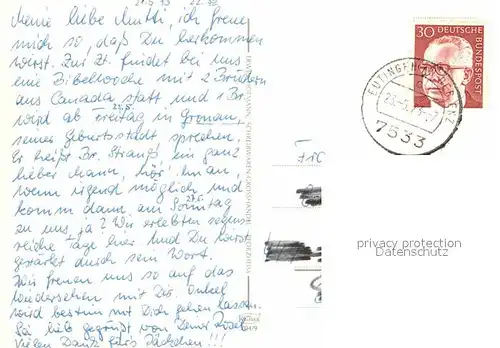 21.5.73
Meine liebe Mutti, ich freue
mich so, daß Du herkommen
wirst. Zur Zt. findet bei uns
eine Bibelwoche mit 2 Brüdern
aus Canada statt und 1 Br.
25.5.
wird ab Freitag in Gronau,
seiner Geburtsstadt sprechen.
Er heißt Br. Strauß, ein ganz
lieber Mann, hör' ihn an,
wenn irgend möglich und
27.5.
komm dann am Sonntag
zu uns, ja? Wir erlebten segens-
reiche Tage hier und Du wirst
gestärkt durch sein Wort.
Wir freuen uns so auf das
Wiedersehen mit Dir. Onkel
wird bestimmt mit Dich gehen lassen.
Sei lieb gegrüßt von Deiner Rosel
Vielen Dank fürs Päckchen!!!
30 DEUTSCHE
BUNDESPOST
7533
privacy protection
Datenschutz